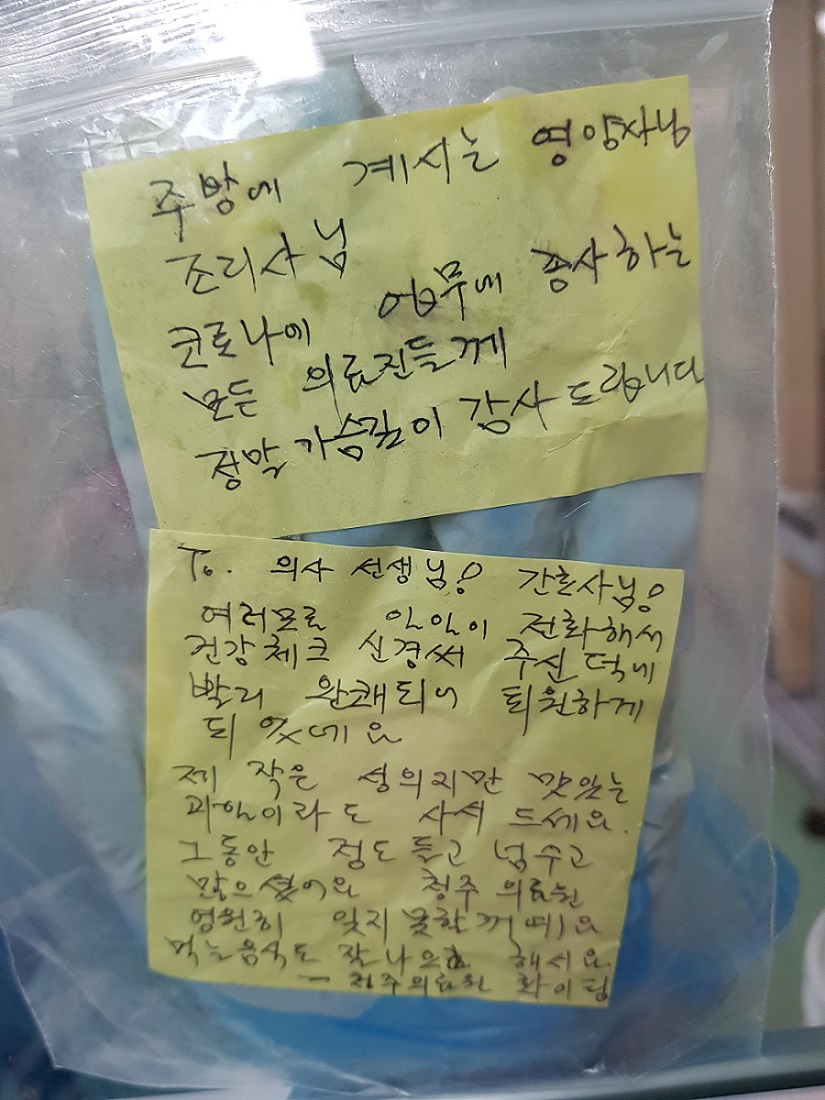 주방에 계시는 영양사님
조리사님
코로나에 업무에 종사하는
모든 의료진들께
정말 가슴깊이 감사 드립니다
To. 의사 선생님! 간호사님!
여러모로 일일이 전화해서
건강체크 신경써 주신 덕에
빨리 완쾌되어 퇴원하게
되었네요
제 작은 성의지만 맛있는
과일이라도 사서 드세요.
그동안 정도 들고 넘 수고
많으셨어요 청주 의료원
영원히 잊지 못할 꺼예요
먹는음식도 잘 나오고 해서요.
- 청주의료원 화이팅